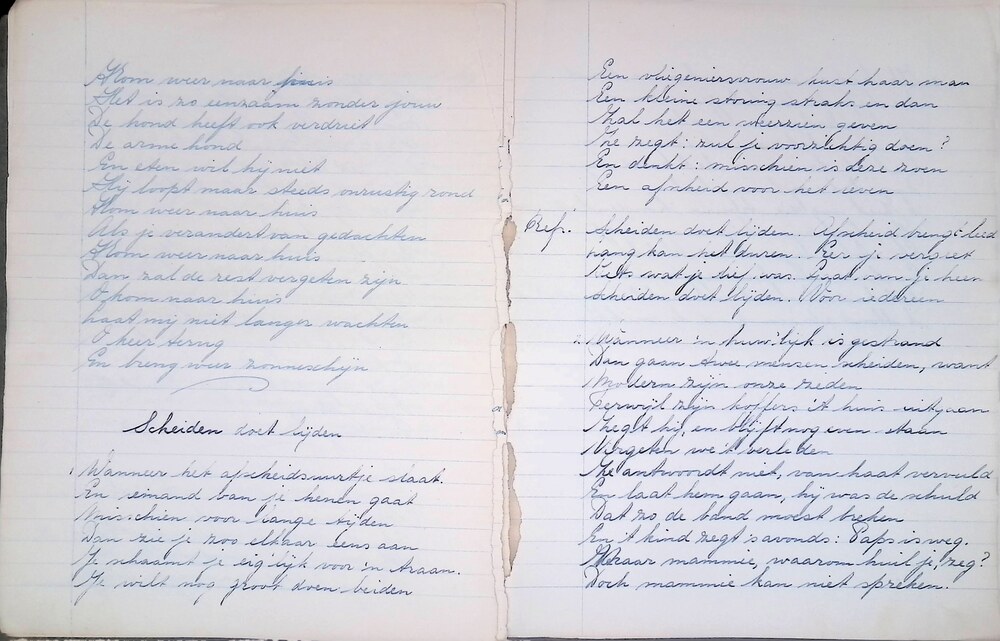 Kom weer naar huis
Het is zo eenzaam zonder jouw
De hond heeft ook verdriet
De arme hond
En eten wil hij niet
Hij loopt maar steeds onrustig rond
Kom weer naar huis
Als je verandert van gedachten
Kom weer naar huis
Dan zal de rest vergeten zijn
O kom naar huis
Laat mij niet langer wachten
O keer terug
En breng weer zonneschijn
Scheiden doet lijden
1. Wanneer het afscheidsuurtje slaat.
En iemand van je henen gaat
Misschien voor lange tijden
Dan zie je zoo elkaar eens aan
Je schaamt je eig'lijk voor 'n traan.
Je wilt nog groot doen beiden
Een vliegeniersvrouw kust haar man
Een kleine storing straks en dan
Zal het een weerzien geven
Ze zegt: zul je voorzichtig doen?
En denkt: misschien is deze zoen
Een afscheid voor het leven
Refr. Scheiden doet lijden. Afscheid brengt leed
Lang kan het duren. Eer je vergeet
Iets wat je lief was. Gaat van je heen
Scheiden doet lijden. Voor iedereen
2. Wanneer 'n huw'lijk is gestrand
Dan gaan twee mensen scheiden, want
Modern zijn onze zeden
Terwijl zijn koffers 't huis uitgaan
Zegt hij, en blijft nog even staan
Vergeten we 't verleden
Ze antwoordt niet, van haat vervuld
En laat hem gaan, hij was de schuld
Dat zo de band moest breken
En 't kind zegt 's avonds: Paps is weg.
Maar mammie, waarom huil je, zeg?
Doch mammie kan niet spreken.